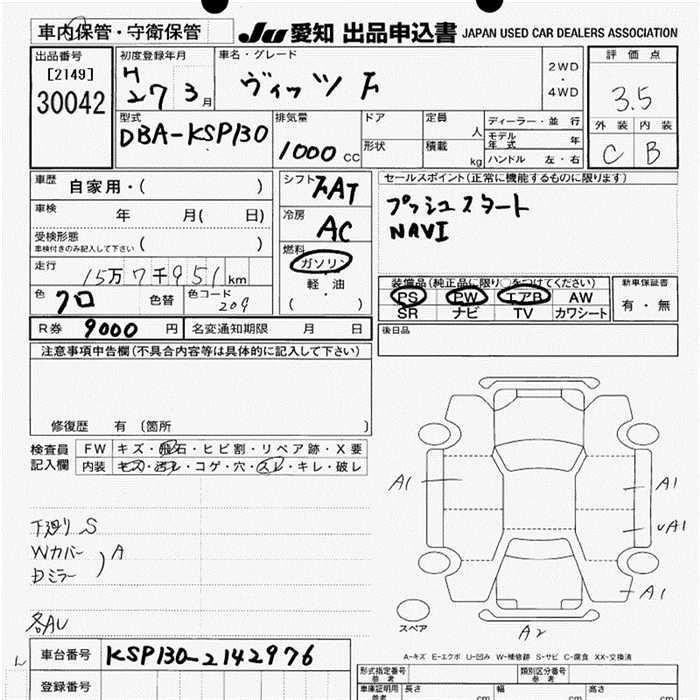 車内保管・守衛保管
JU 愛知 出品申込書 JAPAN USED CAR DEALERS ASSOCIATION
出品番号
[2149]
30042
初度登録年月
H
27 3月
車名・グレード
ヴィッツ F
2WD
・
4WD
評価点
3.5
外装 内装
C B
型式
DBA-KSP130
排気量
1000 CC
ドア
形状
定員
人
積載
kg
ディーラー・並行
モデル年式 年
ハンドル 左・右
車歴 自家用・( )
車検 年 月( 日)
受検形態
車検付きのみ記入して下さい ( )
走行 15万7千951km
色 クロ 色替 色コード 209
R券 9000 円 名変通知期限 月 日
シフト FAT
冷房
AC
燃料
ガソリン
軽油
( )
セールスポイント(正常に機能するものに限ります)
プッシュスタート
NAVI
装備品(純正品に限り○をつけてください)
PS PW エアB AW
SR ナビ TV カワシート
新車保証書
有・無
後日品
注意事項申告欄(不具合内容等は具体的に記入して下さい)
修復歴 有 (箇所 )
検査員
記入欄
FW キズ・飛石・ヒビ割・リペア跡・X要
内装 キズ・汚レ・コゲ・穴・スレ・キレ・破レ
下廻り S
Wカバー
Dミラー
) A
各AU
A1
A1
UA1
A1
A2
スペア
A-キズ E-エクボ U-凹み W-補修跡 S-サビ C-腐食 XX-交換済
車台番号 KSP130-2142976
登録番号
型式指定番号 参考
類別区分番号 参考
車庫証明用 参考
長さ cm
幅 cm
高さ cm